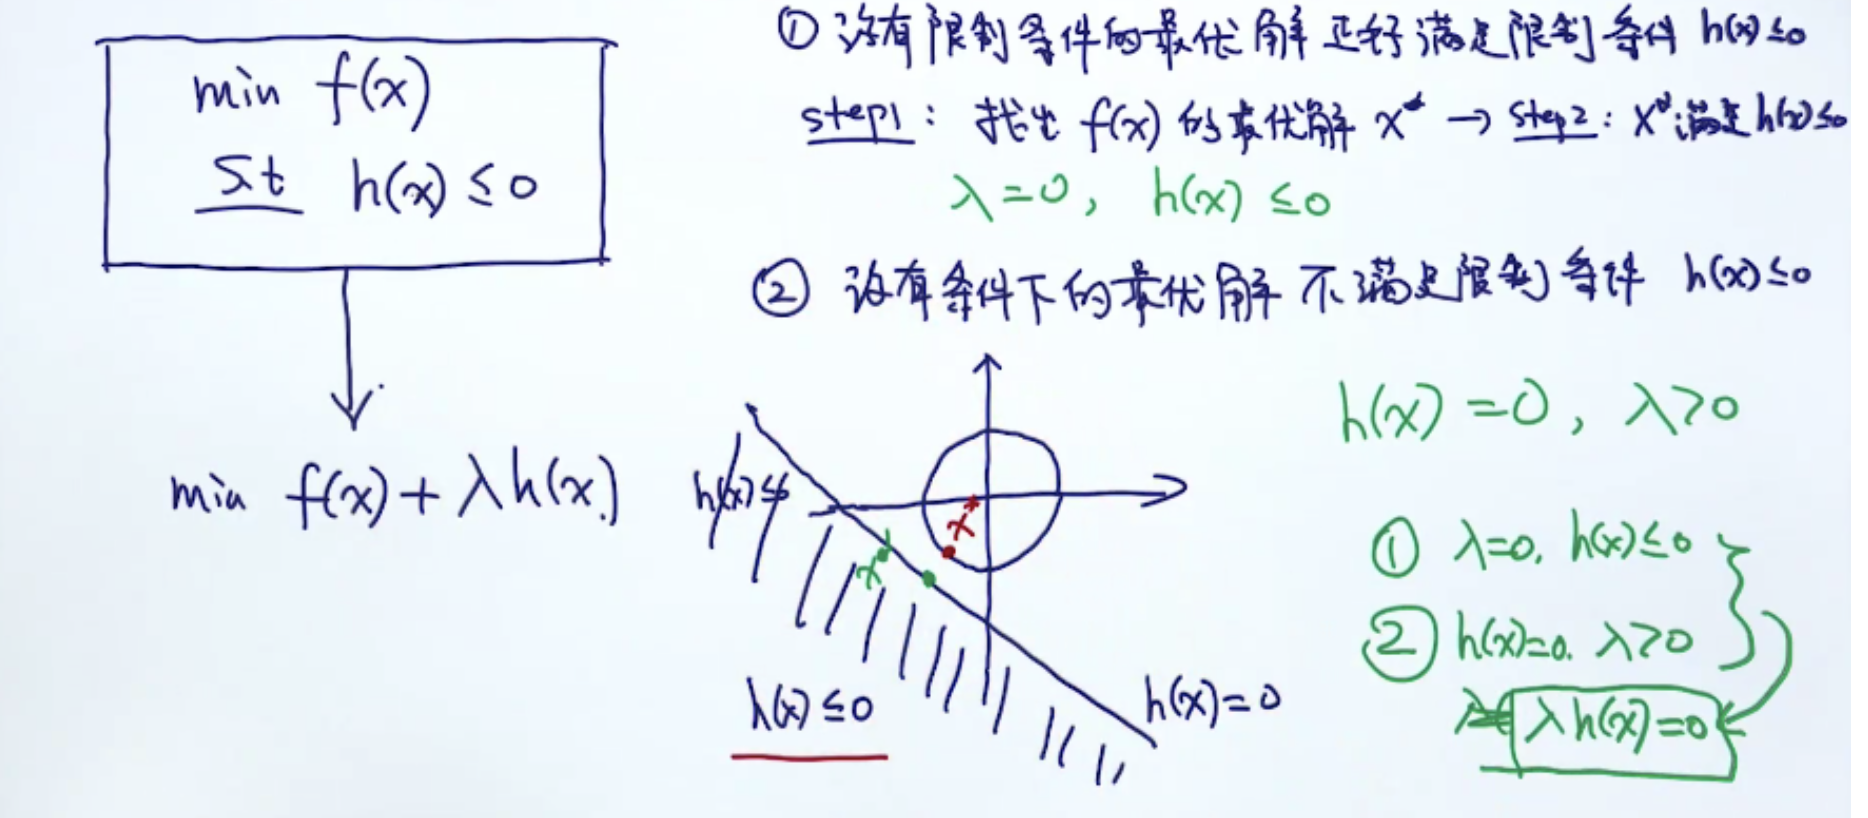 min f(x)
st h(x) ≤ 0
min f(x) + λh(x)
① 没有限制条件的最优解正好满足限制条件 h(x)≤0
step1: 找出 f(x) 的最优解 x* → step2: x*满足h(x)≤0
λ=0, h(x) ≤0
② 没有条件下的最优解 不满足限制条件 h(x)≤0
h(x) =0, λ>0
h(x)≤0
x
x
h(x) ≤0
h(x)=0
① λ=0, h(x)≤0
② h(x)=0. λ>0
λh(x)=0